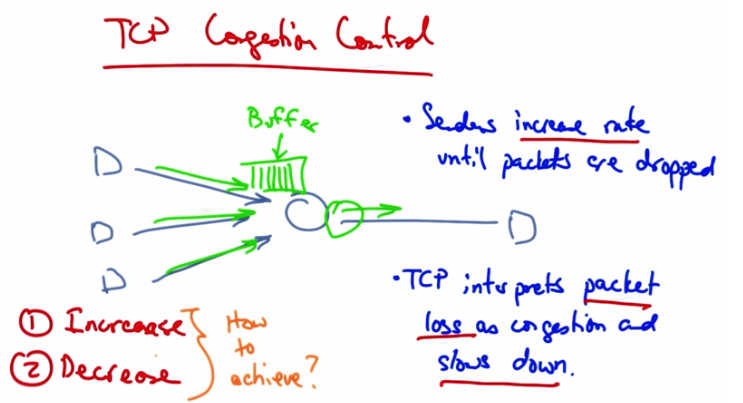 TCP Congestion Control
Buffer
• Senders increase rate
until packets are dropped
• TCP interprets packet
loss as congestion and
slows down.
① Increase
② Decrease
How
to
achieve?